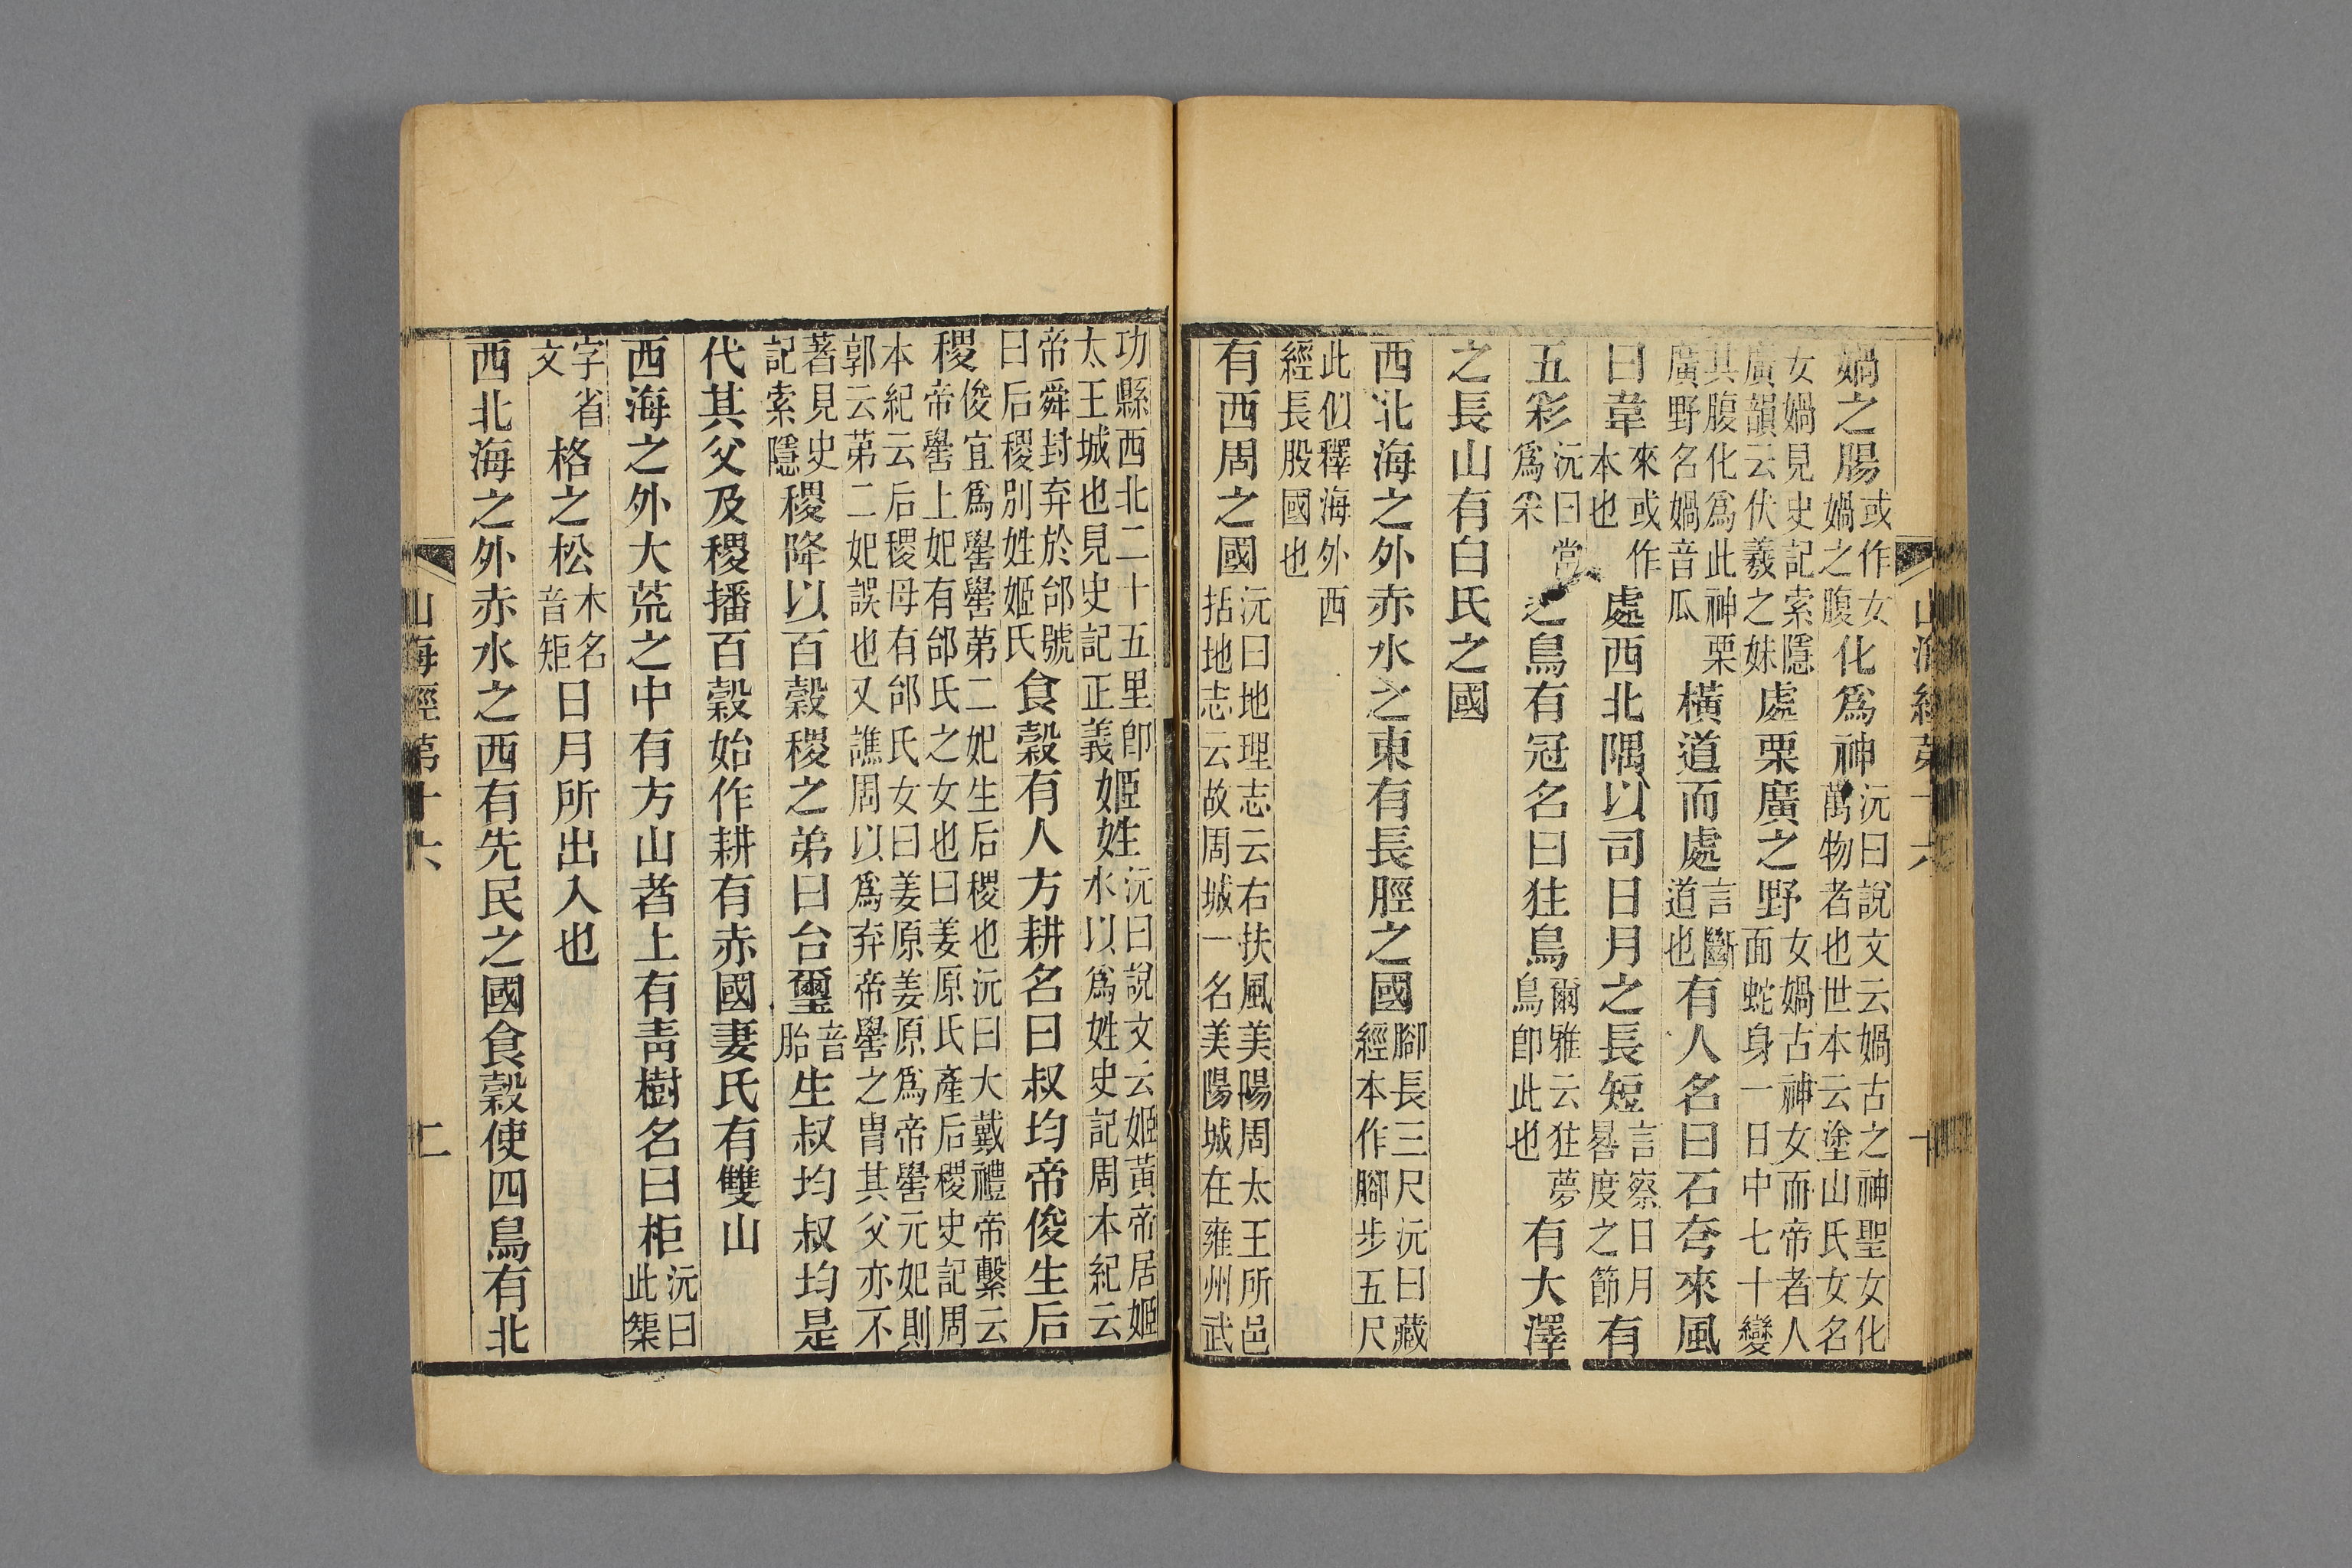 山海經第十六
媧之腸或作女媧之腹化爲神沅曰說文云媧古之神聖女化萬物者也世本云塗山氏女名
女媧見史記索隱廣韻云伏羲之妹處栗廣之野女媧古神女而帝者人面蛇身一日中七十變
其腹化爲此神栗廣野名媧音瓜橫道而處言斷道也有人名曰石夸來風
曰韋來或作本也處西北隅以司日月之長短言察日月晷度之節有
五彩沅曰當爲采之鳥有冠名曰狂鳥爾雅云狂夢鳥卽此也有大澤
之長山有白氏之國
西北海之外赤水之東有長脛之國腳長三尺沅曰藏經本作腳步五尺
此似釋海外西經長股國也
有西周之國沅曰地理志云右扶風美陽周太王所邑括地志云故周城一名美陽城在雍州武
功縣西北二十五里卽太王城也見史記正義姬姓沅曰說文云姬黃帝居姬水以爲姓史記周本紀云
帝舜封弃於邰號曰后稷別姓姬氏食穀有人方耕名曰叔均帝俊生后
稷俊宜爲嚳嚳第二妃生后稷也沅曰大戴禮帝繫云帝嚳上妃有邰氏之女也曰姜原氏產后稷史記周
本紀云后稷母有邰氏女曰姜原姜原爲帝嚳元妃則郭云第二妃誤也又譙周以爲弃帝嚳之冑其父亦不
著見史記索隱稷降以百穀稷之弟曰台璽音胎生叔均叔均是
代其父及稷播百穀始作耕有赤國妻氏有雙山
西海之外大荒之中有方山者上有靑樹名曰柜沅曰此榘
字省文格之松木名音矩日月所出入也
西北海之外赤水之西有先民之國食穀使四鳥有北
山海經第十六 二